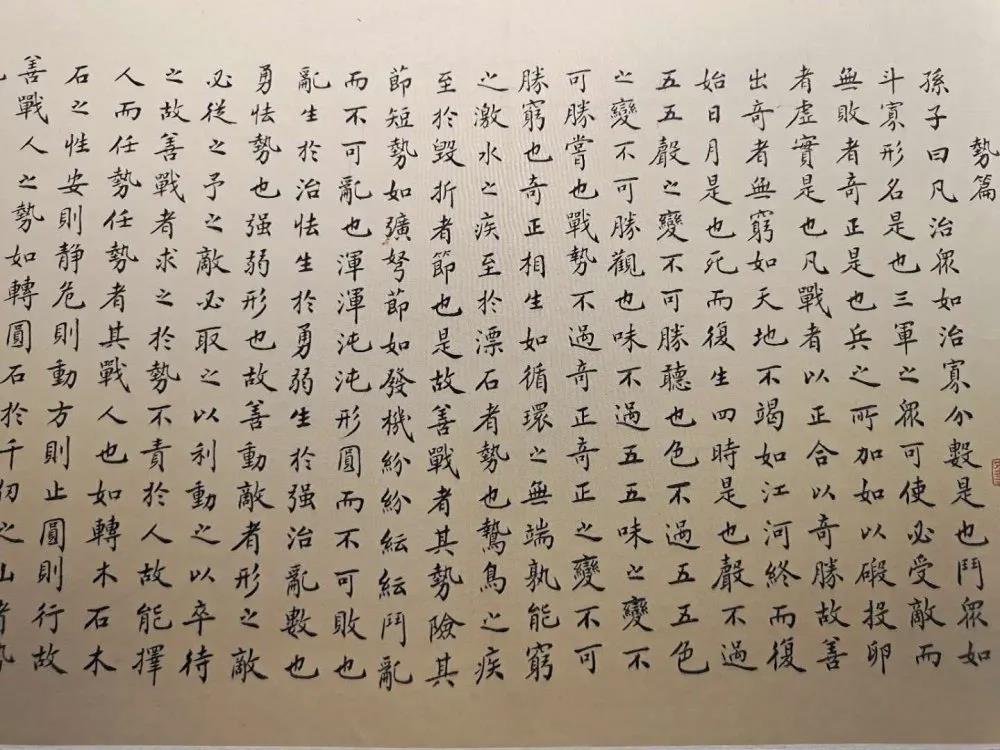 勢篇
孫子曰凡治眾如治寡分數是也鬥眾如
斗寡形名是也三軍之眾可使必受敵而
無敗者奇正是也兵之所加如以碫投卵
者虛實是也凡戰者以正合以奇勝故善
出奇者無窮如天地不竭如江河終而復
始日月是也死而復生四時是也聲不過
五五聲之變不可勝聽也色不過五五色
之變不可勝觀也味不過五五味之變不
可勝嘗也戰勢不過奇正奇正之變不可
勝窮也奇正相生如循環之無端孰能窮
之激水之疾至於漂石者勢也鷙鳥之疾
至於毀折者節也是故善戰者其勢險其
節短勢如彍弩節如發機紛紛紜紜鬥亂
而不可亂也渾渾沌沌形圓而不可敗也
亂生於治怯生於勇弱生於强治亂數也
勇怯勢也强弱形也故善動敵者形之敵
必從之予之敵必取之以利動之以卒待
之故善戰者求之於勢不責於人故能擇
人而任勢任勢者其戰人也如轉木石木
石之性安則静危則動方則止圓則行故
善戰人之勢如轉圓石於千仞之山者勢